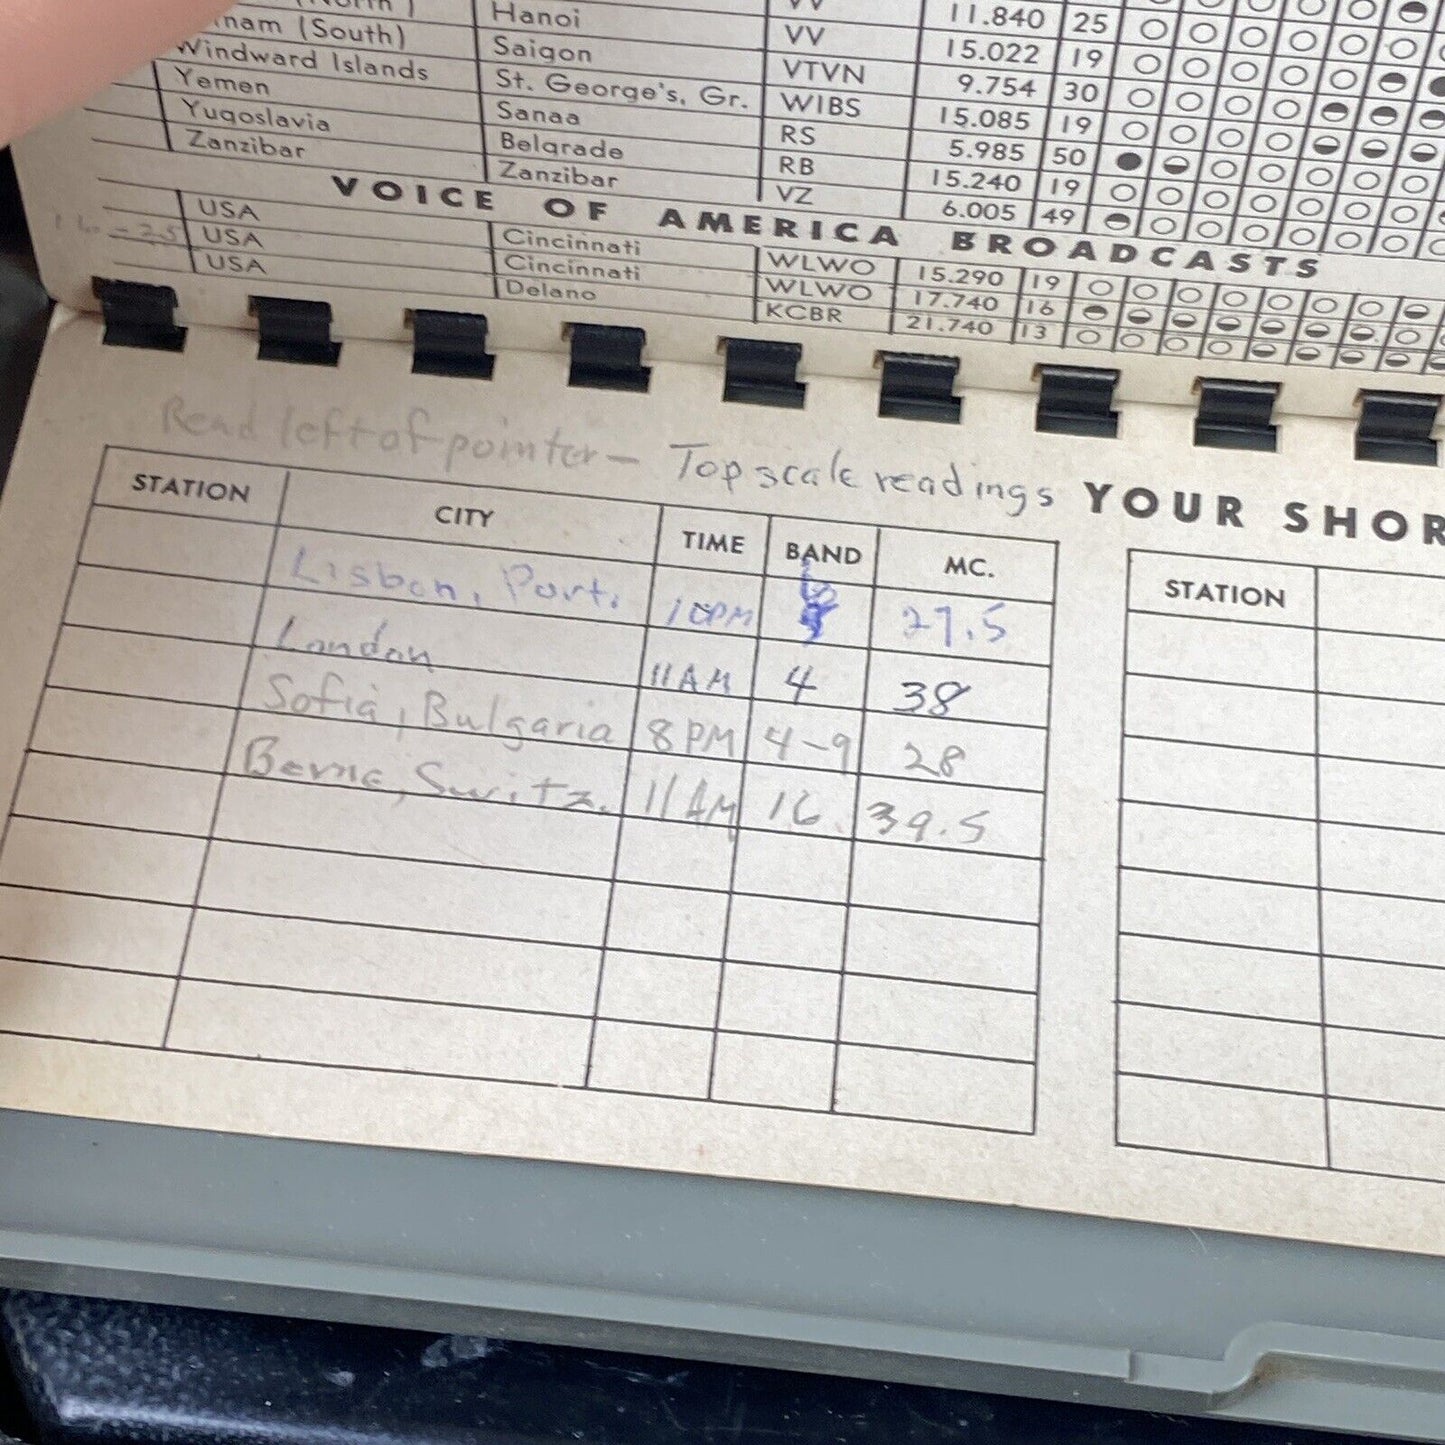 (North)
Hanoi VV 11.840 25
nam (South) Saigon VV 15.022 19
Windward Islands St. George's, Gr. VTVN 9.754 30
Yemen Sanaa WIBS 15.085 19
Yugoslavia Belgrade RS 5.985 50
Zanzibar Zanzibar RB 15.240 19
VZ 6.005 49
VOICE OF AMERICA BROADCASTS
USA Cincinnati WLWO 15.290 19
USA Cincinnati WLWO 17.740 16
USA Delano KCBR 21.740 13
Read left of pointer - Top scale readings
YOUR SHOR
STATION CITY TIME BAND MC. STATION
Lisbon, Port. 10PM 27.5
London 11AM 4 38
Sofia, Bulgaria 8PM 4-9 28
Berne, Switz. 11AM 16 39.5